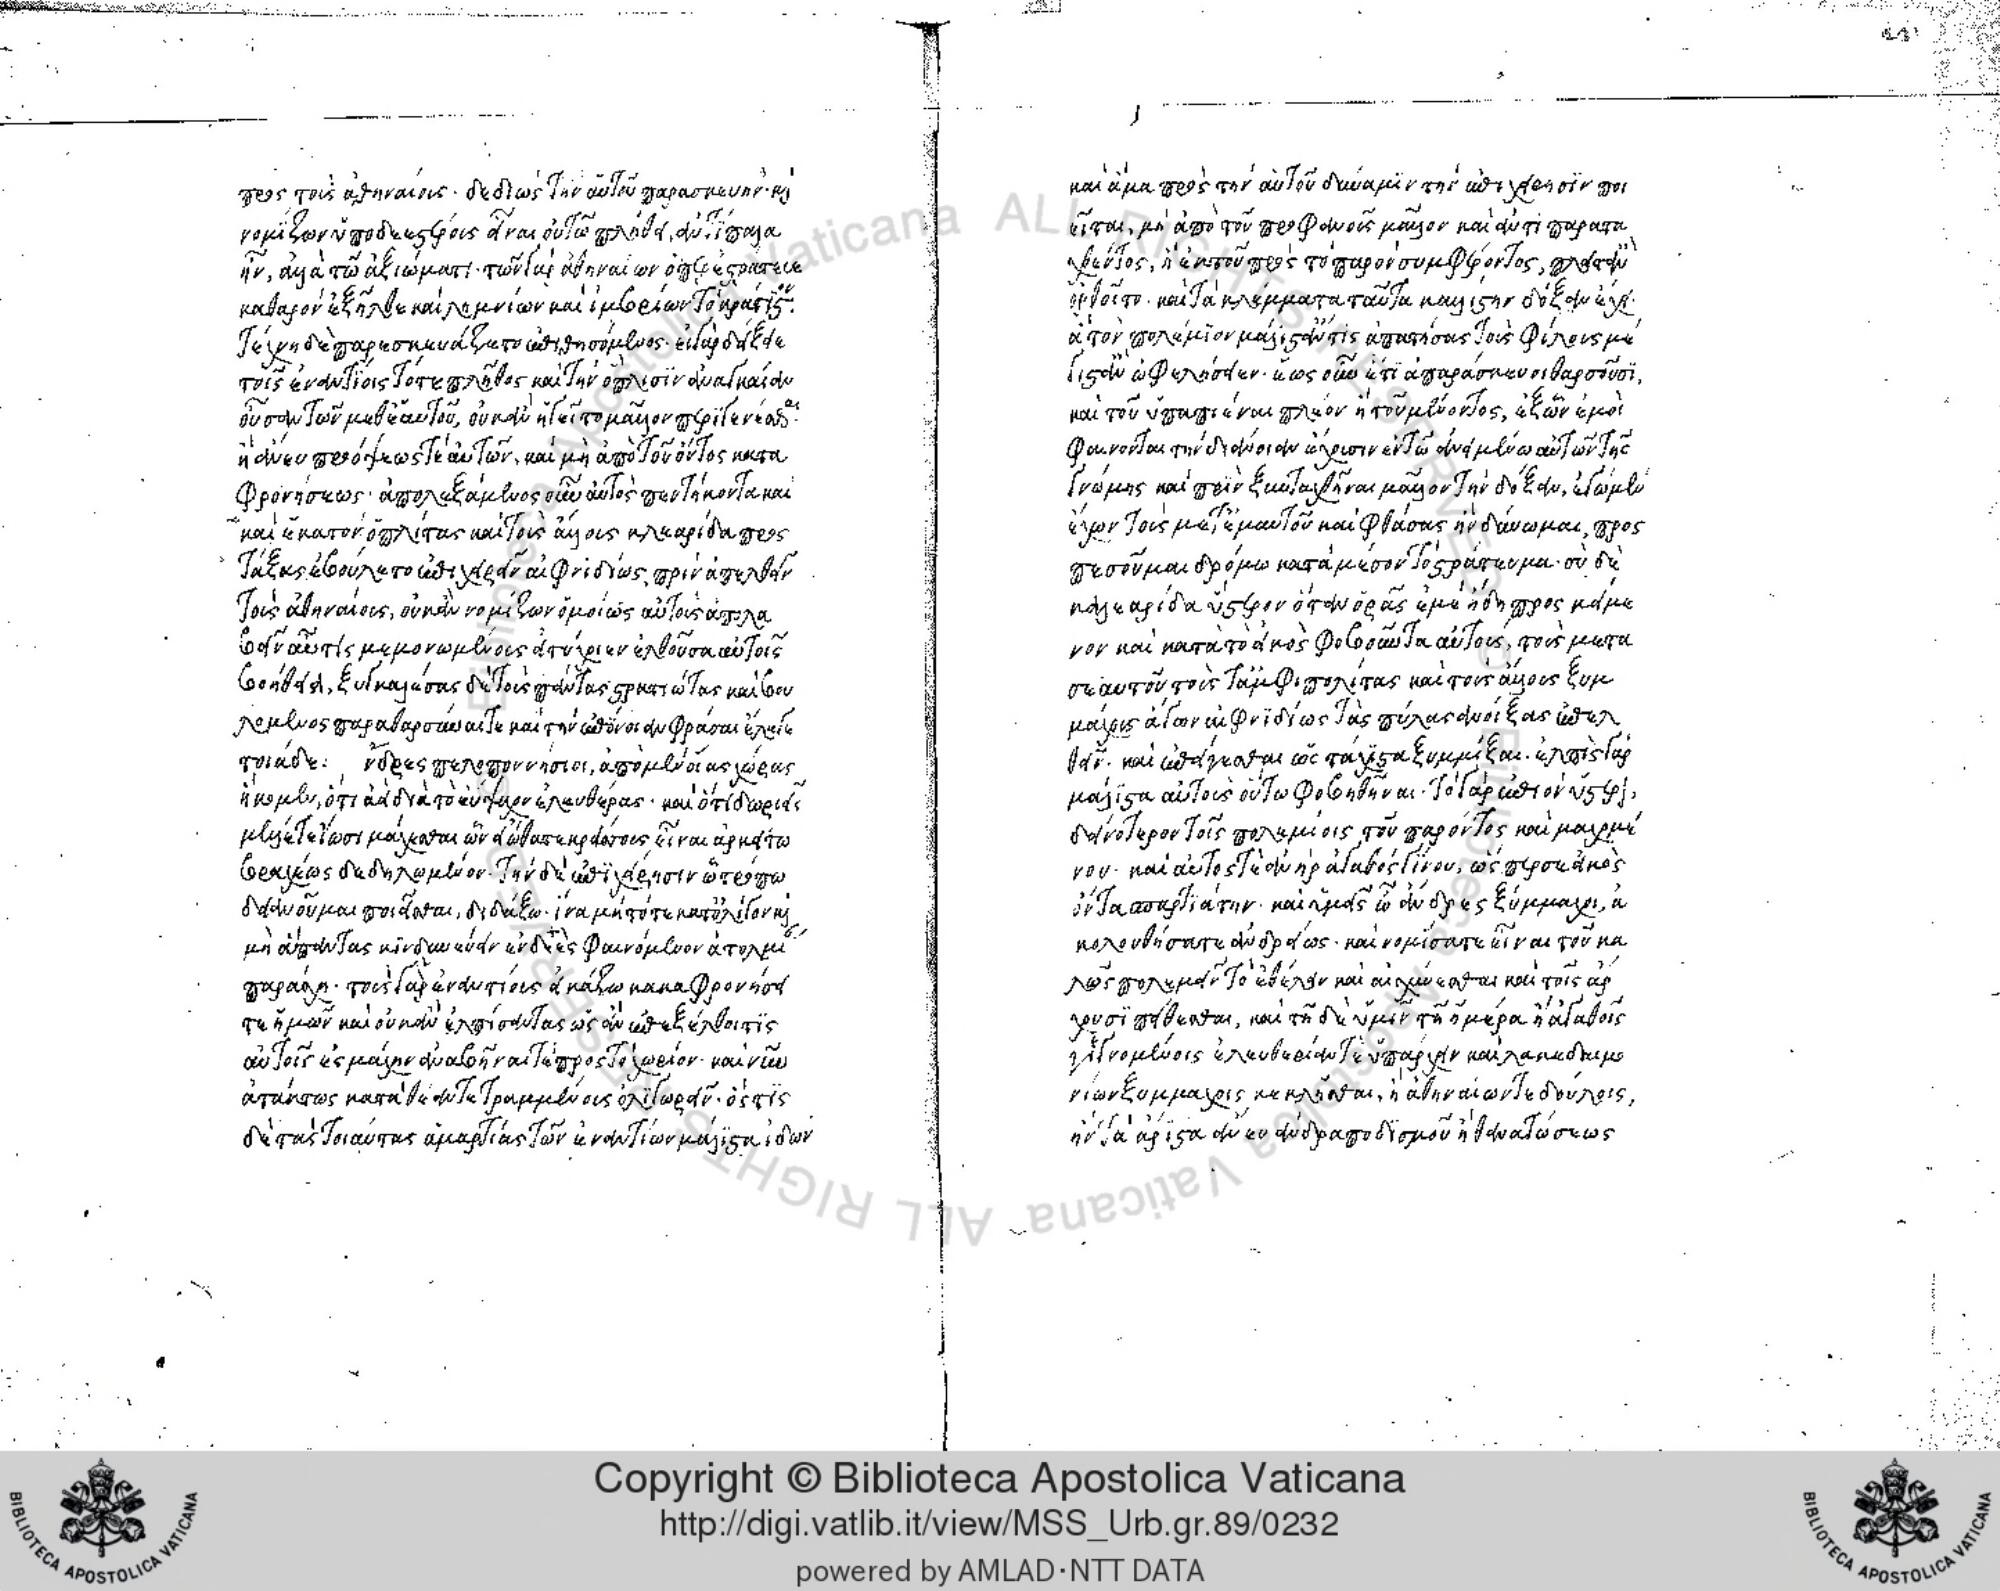 πρὸς τοὺς ἀθηναίους· δεδιὼς τὴν αὑτοῦ παρασκευὴν· καὶ
νομίζων ὑποδεεστέρους εἶναι οὐ τῷ πλήθει, ἀντίπαλα
ἦν, ἀλλὰ τῷ ἀξιώματι· τῶν γὰρ ἀθηναίων ὅπερ ἐστράτευε
καθαρὸν ἐξῆλθε καὶ λημνίων καὶ ἰμβρίων τὸ κράτιστον·
τέχνῃ δὲ παρεσκευάζετο ἐπιθησόμενος· εἰ γὰρ δείξειε
τοῖς ἐναντίοις τό τε πλῆθος καὶ τὴν ὅπλισιν ἀναγκαίαν
οὖσαν τῶν μεθ' ἑαυτοῦ, οὐκ ἂν ἡγεῖτο μᾶλλον περιγενέσθαι
ἢ ἄνευ προόψεώς τε αὐτῶν, καὶ μὴ ἀπὸ τοῦ ὄντος κατα
φρονήσεως· ἀπολεξάμενος οὖν αὐτὸς πεντήκοντα καὶ
καὶ ἑκατὸν ὁπλίτας καὶ τοὺς ἄλλους κλεαρίδα προς
τάξας ἐβούλετο ἐπιχειρεῖν αἰφνιδίως, πρὶν ἀπελθεῖν
τοὺς ἀθηναίους, οὐκ ἂν νομίζων ὁμοίως αὐτοὺς ἀπολα
βεῖν αὖτις μεμονωμένους εἰ τύχοιεν ἐλθοῦσα αὐτοῖς
βοήθεια, ξυγκαλέσας δὲ τοὺς πάντας στρατιώτας καὶ βου
λόμενος παραθαρσῦναί τε καὶ τὴν ἐπίνοιαν φράσαι ἔλεγε
τοιάδε: ἄνδρες πελοποννήσιοι, ἀπὸ μὲν οἵας χώρας
ἥκομεν, ὅτι ἀεὶ διὰ τὸ εὔψυχον ἐλευθέρας· καὶ ὅτι δωριεῖς
μέλλετε ἴωσι μάχεσθαι ὧν εἰώθατε κρείσσους εἶναι ἀρκείτω
βραχέως δεδηλωμένον· τὴν δὲ ἐπιχείρησιν ᾧ τρόπῳ
διανοοῦμαι ποιεῖσθαι, διδάξω· ἵνα μή τό τε κατ' ὀλίγον καὶ
μὴ ἅπαντας κινδυνεύειν ἐνδεὲς φαινόμενον ἀτολμίαν
παράσχῃ· τοὺς γὰρ ἐναντίους εἰκάζω καταφρονήσει
τε ἡμῶν καὶ οὐκ ἂν ἐλπίσαντας ὡς ἂν ἐπεξέλθοι τις
αὐτοῖς ἐς μάχην ἀναβῆναί τε πρὸς τὸ χωρίον· καὶ νῦν
ἀτάκτως κατὰ θέαν τετραμμένους ὀλιγωρεῖν· ὅστις
δὲ τὰς τοιαύτας ἁμαρτίας τῶν ἐναντίων μάλιστα ἰδὼν
καὶ ἅμα πρὸς τὴν αὑτοῦ δύναμιν τὴν ἐπιχείρησιν ποι
εῖται, μὴ ἀπὸ τοῦ προφανοῦς μᾶλλον καὶ ἀντιπαρατα
χθέντος, ἢ ἐκ τοῦ πρὸς τὸ παρὸν συμφέροντος, πλεῖστ' ἂν
ὀρθοῖτο· καὶ τὰ κλέμματα ταῦτα καλλίστην δόξαν ἔχει·
ἃ τὸν πολέμιον μάλιστ' ἄν τις ἀπατήσας τοὺς φίλους μέ
γιστ' ἂν ὠφελήσειεν· ἕως οὖν ἔτι ἀπαράσκευοι θαρσοῦσι,
καὶ τοῦ ὑπαπιέναι πλέον ἢ τοῦ μένοντος, ἐξ ὧν ἐμοὶ
φαίνονται τὴν διάνοιαν ἔχουσιν ἐν τῷ ἀνειμένῳ αὐτῶν τῆς
γνώμης καὶ πρὶν ξυνταχθῆναι μᾶλλον τὴν δόξαν, ἐγὼ μὲν
ἔχων τοὺς μετ' ἐμαυτοῦ καὶ φθάσας ἢν δύνωμαι, προς
πεσοῦμαι δρόμῳ κατὰ μέσον τὸ στράτευμα· σὺ δὲ
κλεαρίδα ὕστερον ὅταν ὁρᾷς ἐμὲ ἤδη προσκείμε
νον καὶ κατὰ τὸ εἰκὸς φοβοῦντα αὐτούς, τοὺς μετὰ
σεαυτοῦ τούς τ' ἀμφιπολίτας καὶ τοὺς ἄλλους ξυμ
μάχους ἄγων αἰφνιδίως τὰς πύλας ἀνοίξας ἐπεκ
θεῖν· καὶ ἐπείγεσθαι ὡς τάχιστα ξυμμίξαι· ἐλπὶς γὰρ
μάλιστα αὐτοὺς οὕτω φοβηθῆναι· τὸ γὰρ ἐπιὸν ὕστερον,
δεινότερον τοῖς πολεμίοις τοῦ παρόντος καὶ μαχομέ
νου· καὶ αὐτός τε ἀνὴρ ἀγαθὸς γίνου, ὥσπερ σε εἰκὸς
ὄντα σπαρτιάτην· καὶ ὑμεῖς ὦ ἄνδρες ξύμμαχοι, ἀ
κολουθήσατε ἀνδρείως· καὶ νομίσατε εἶναι τοῦ κα
λῶς πολεμεῖν τὸ ἐθέλειν καὶ αἰσχύνεσθαι καὶ τοῖς ἄρ
χουσι πείθεσθαι, καὶ τῇδε ὑμῖν τῇ ἡμέρᾳ ἢ ἀγαθοῖς
γιγνομένοις ἐλευθερίαν τε ὑπάρχειν καὶ λακεδαιμο
νίων ξυμμάχοις κεκλῆσθαι, ἢ ἀθηναίων τε δούλοις,
ἢν τὰ ἄριστα ἄνευ ἀνδραποδισμοῦ ἢ θανατώσεως
Copyright © Biblioteca Apostolica Vaticana
http://digi.vatlib.it/view/MSS_Urb.gr.89/0232
powered by AMLAD·NTT DATA
BIBLIOTECA APOSTOLICA VATICANA
BIBLIOTECA APOSTOLICA VATICANA